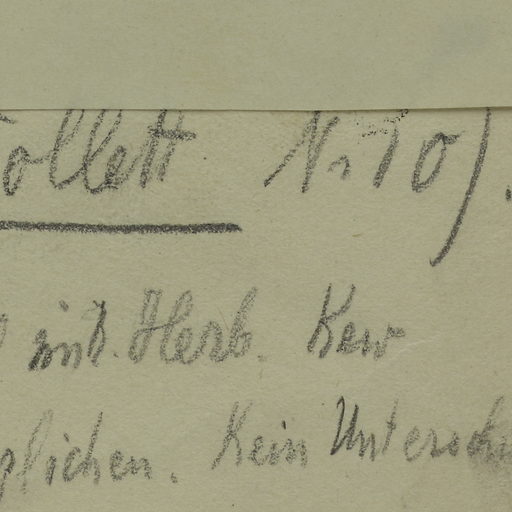 Collett Nr 10).
int. Herb. Kew
glichen. Kein Untersch